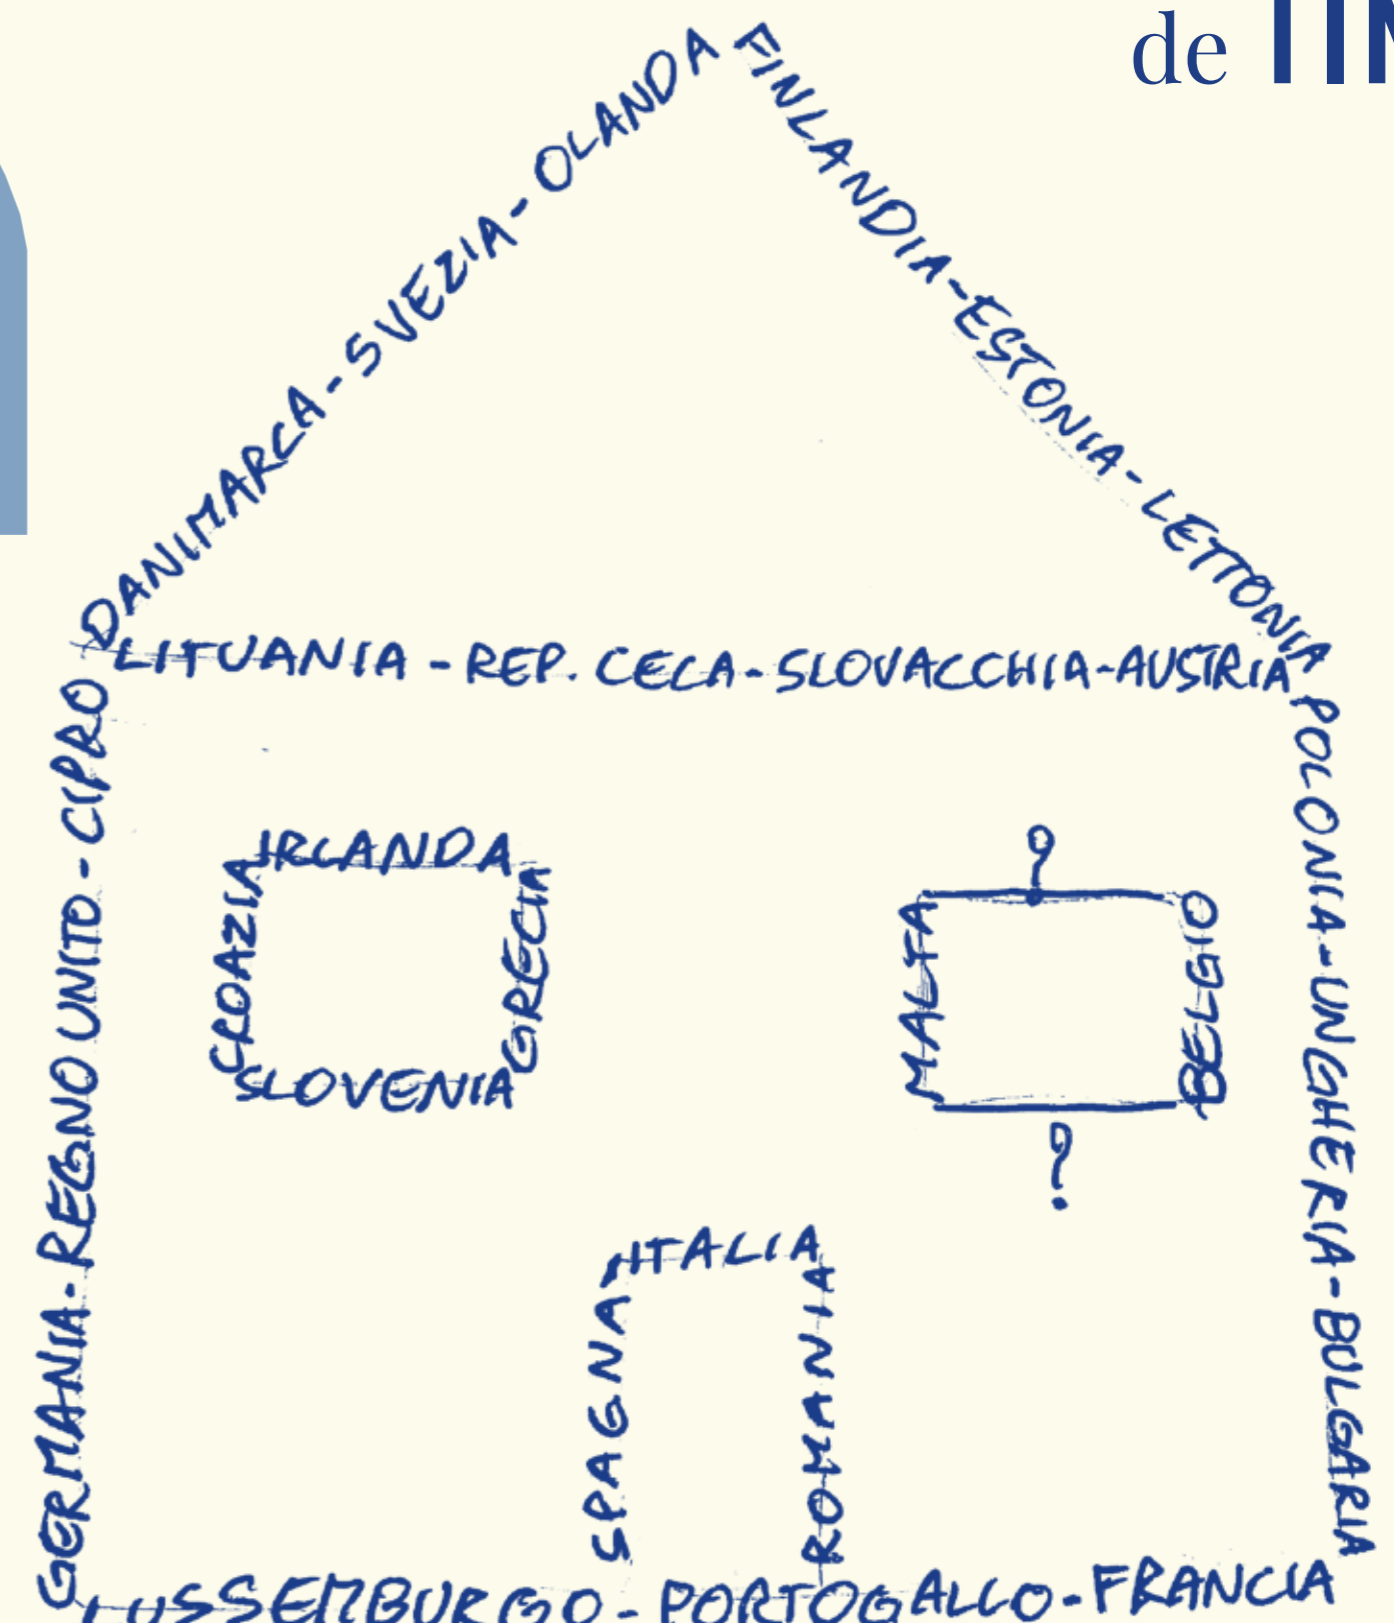 de
DANIMARCA - SVEZIA - OLANDA
FINLANDIA - ESTONIA - LETTONIA
LITUANIA - REP. CECA - SLOVACCHIA - AUSTRIA
GERMANIA - REGNO UNITO - CIPRO
POLONIA - UNGHERIA - BULGARIA
IRLANDA
CROAZIA
GRECIA
SLOVENIA
?
MALTA
BELGIO
?
ITALIA
SPAGNA
ROMANIA
LUSSEMBURGO - PORTOGALLO - FRANCIA